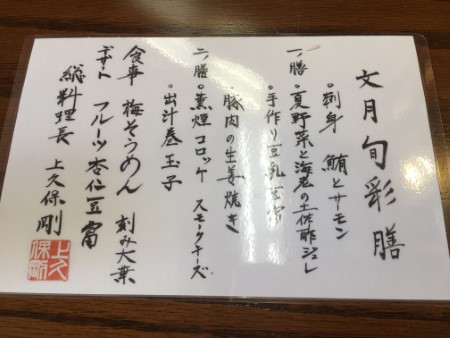 文月旬彩膳
・刺身 鮪とサーモン
一ノ膳・夏野菜と海老の土佐酢ジュレ
・手作り豆乳豆富
・豚肉の生姜焼き
二ノ膳・薫煙コロッケ スモークチーズ
・出汁巻玉子
食事 梅そうめん 刻み大葉
デザート フルーツ杏仁豆富
総料理長 上久保剛
上久保剛